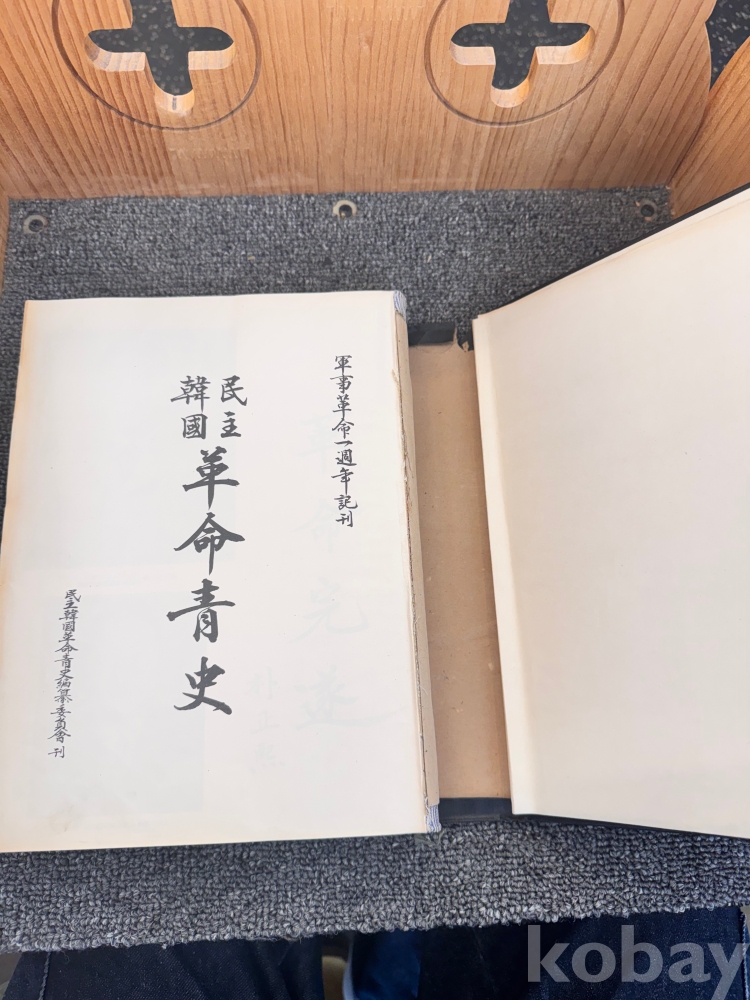 軍事革命一週年記刊
民主
韓國
革命青史
民主韓國革命青史編纂委員會 刊
kobay